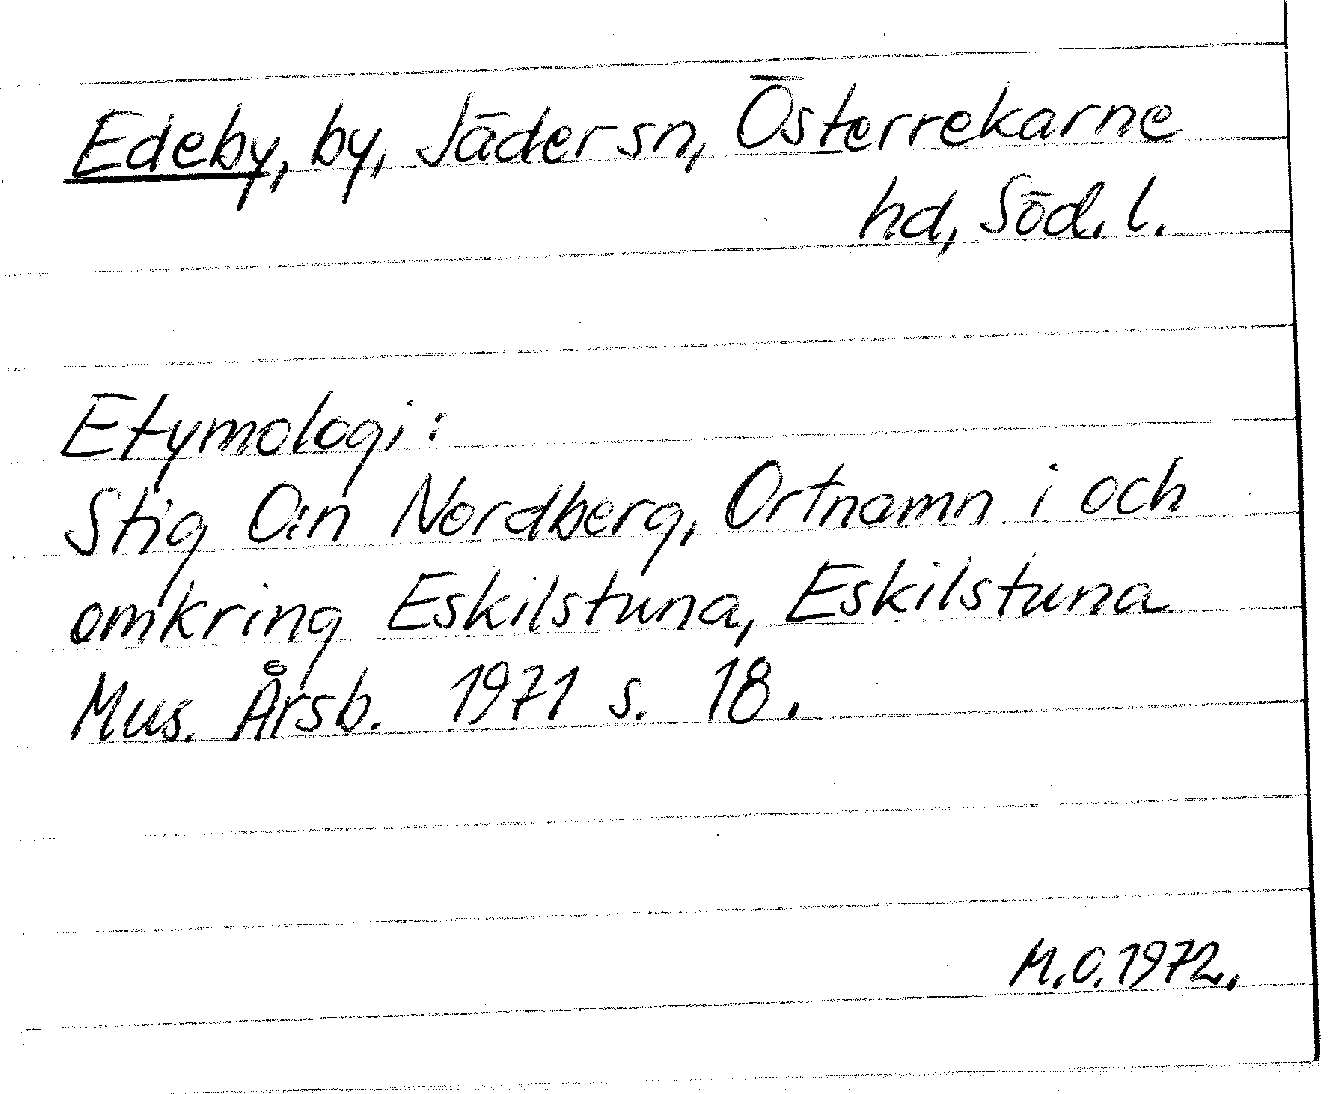 Edeby, by, Jäder sn, Österrekarne
hd, Söd. l.
Etymologi:
Stig O:n Nordberg, Ortnamn i och
omkring Eskilstuna, Eskilstuna
Mus. Årsb. 1971 s. 18.
M.O.1972.